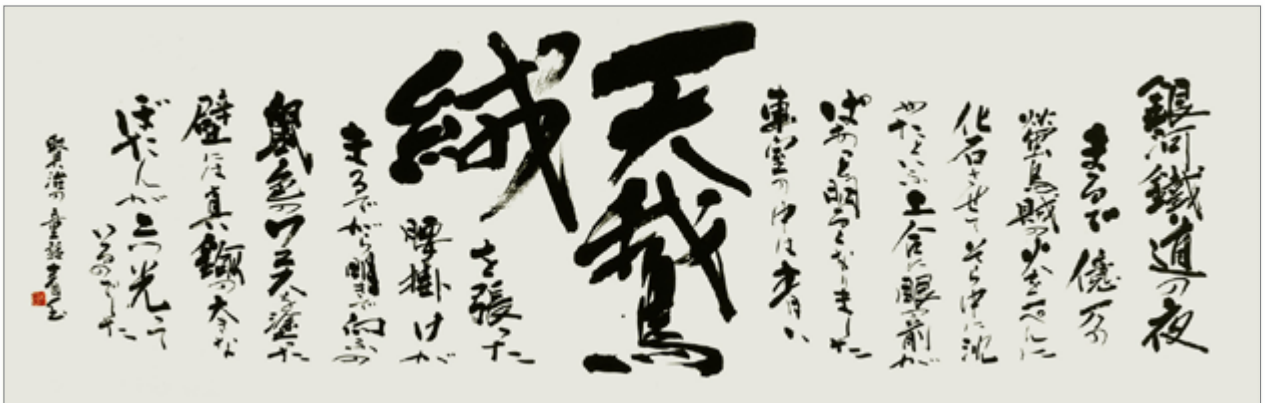 銀河鐵道の夜
まるで億万の
螢烏賊の火を一ぺんに
化石させてそら中に沈
めたといふ工合に眼の前が
ぱあっと明るくなりました
車室の中は青い
天鵞
絨
を張った
腰掛けが
まるでがら明きで向ふの
鼠色のワニスを塗った
壁には真鍮の大きな
ぼたんが二つ光って
いるのでした
賢治の童話